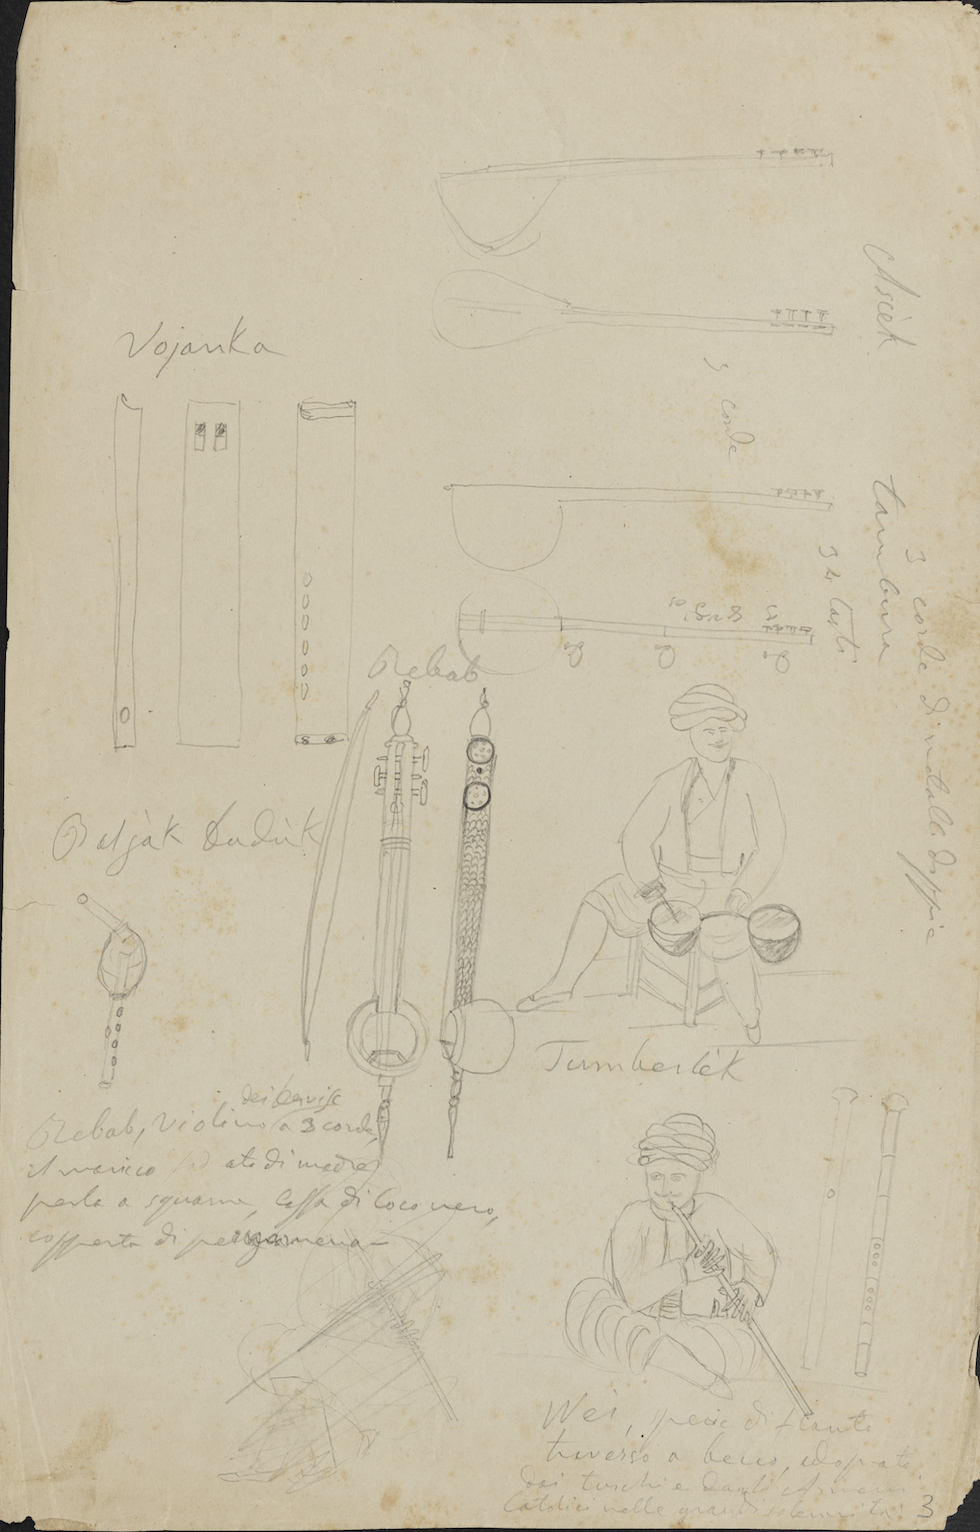 Vojanka
Asciek
3 corde
tambura
3 corde di metallo doppie
34 tasti
Rebab
Baljak Duduk
Tumbelek
dei dervisc
Rebab, violino a 3 corde,
il manico ato di madre
perla a squame, Cassa di Coco nero,
copperta di pergamena —
Nei, specie di flauto
traverso a becco, adoprato
dai turchi e dagli Armeni
Catolici nelle grandi solennità
3